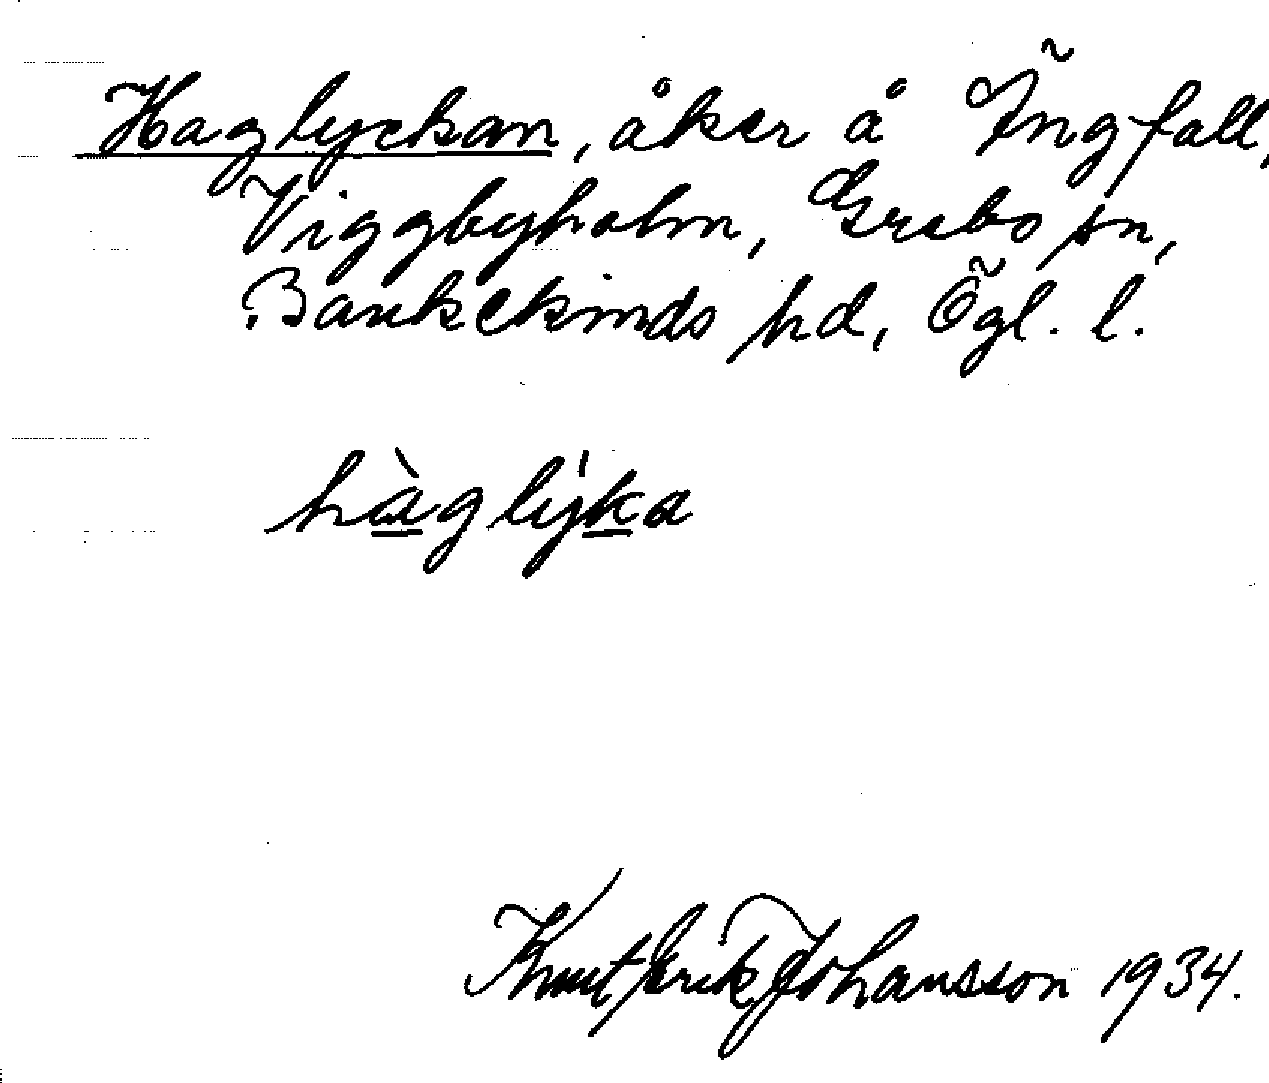 Haglyckan, åker å Ängfall,
Viggbyholm, Grebo sn,
Bankekinds hd, Ögl. l.
hàglýka
Knut Erik Johansson 1934.